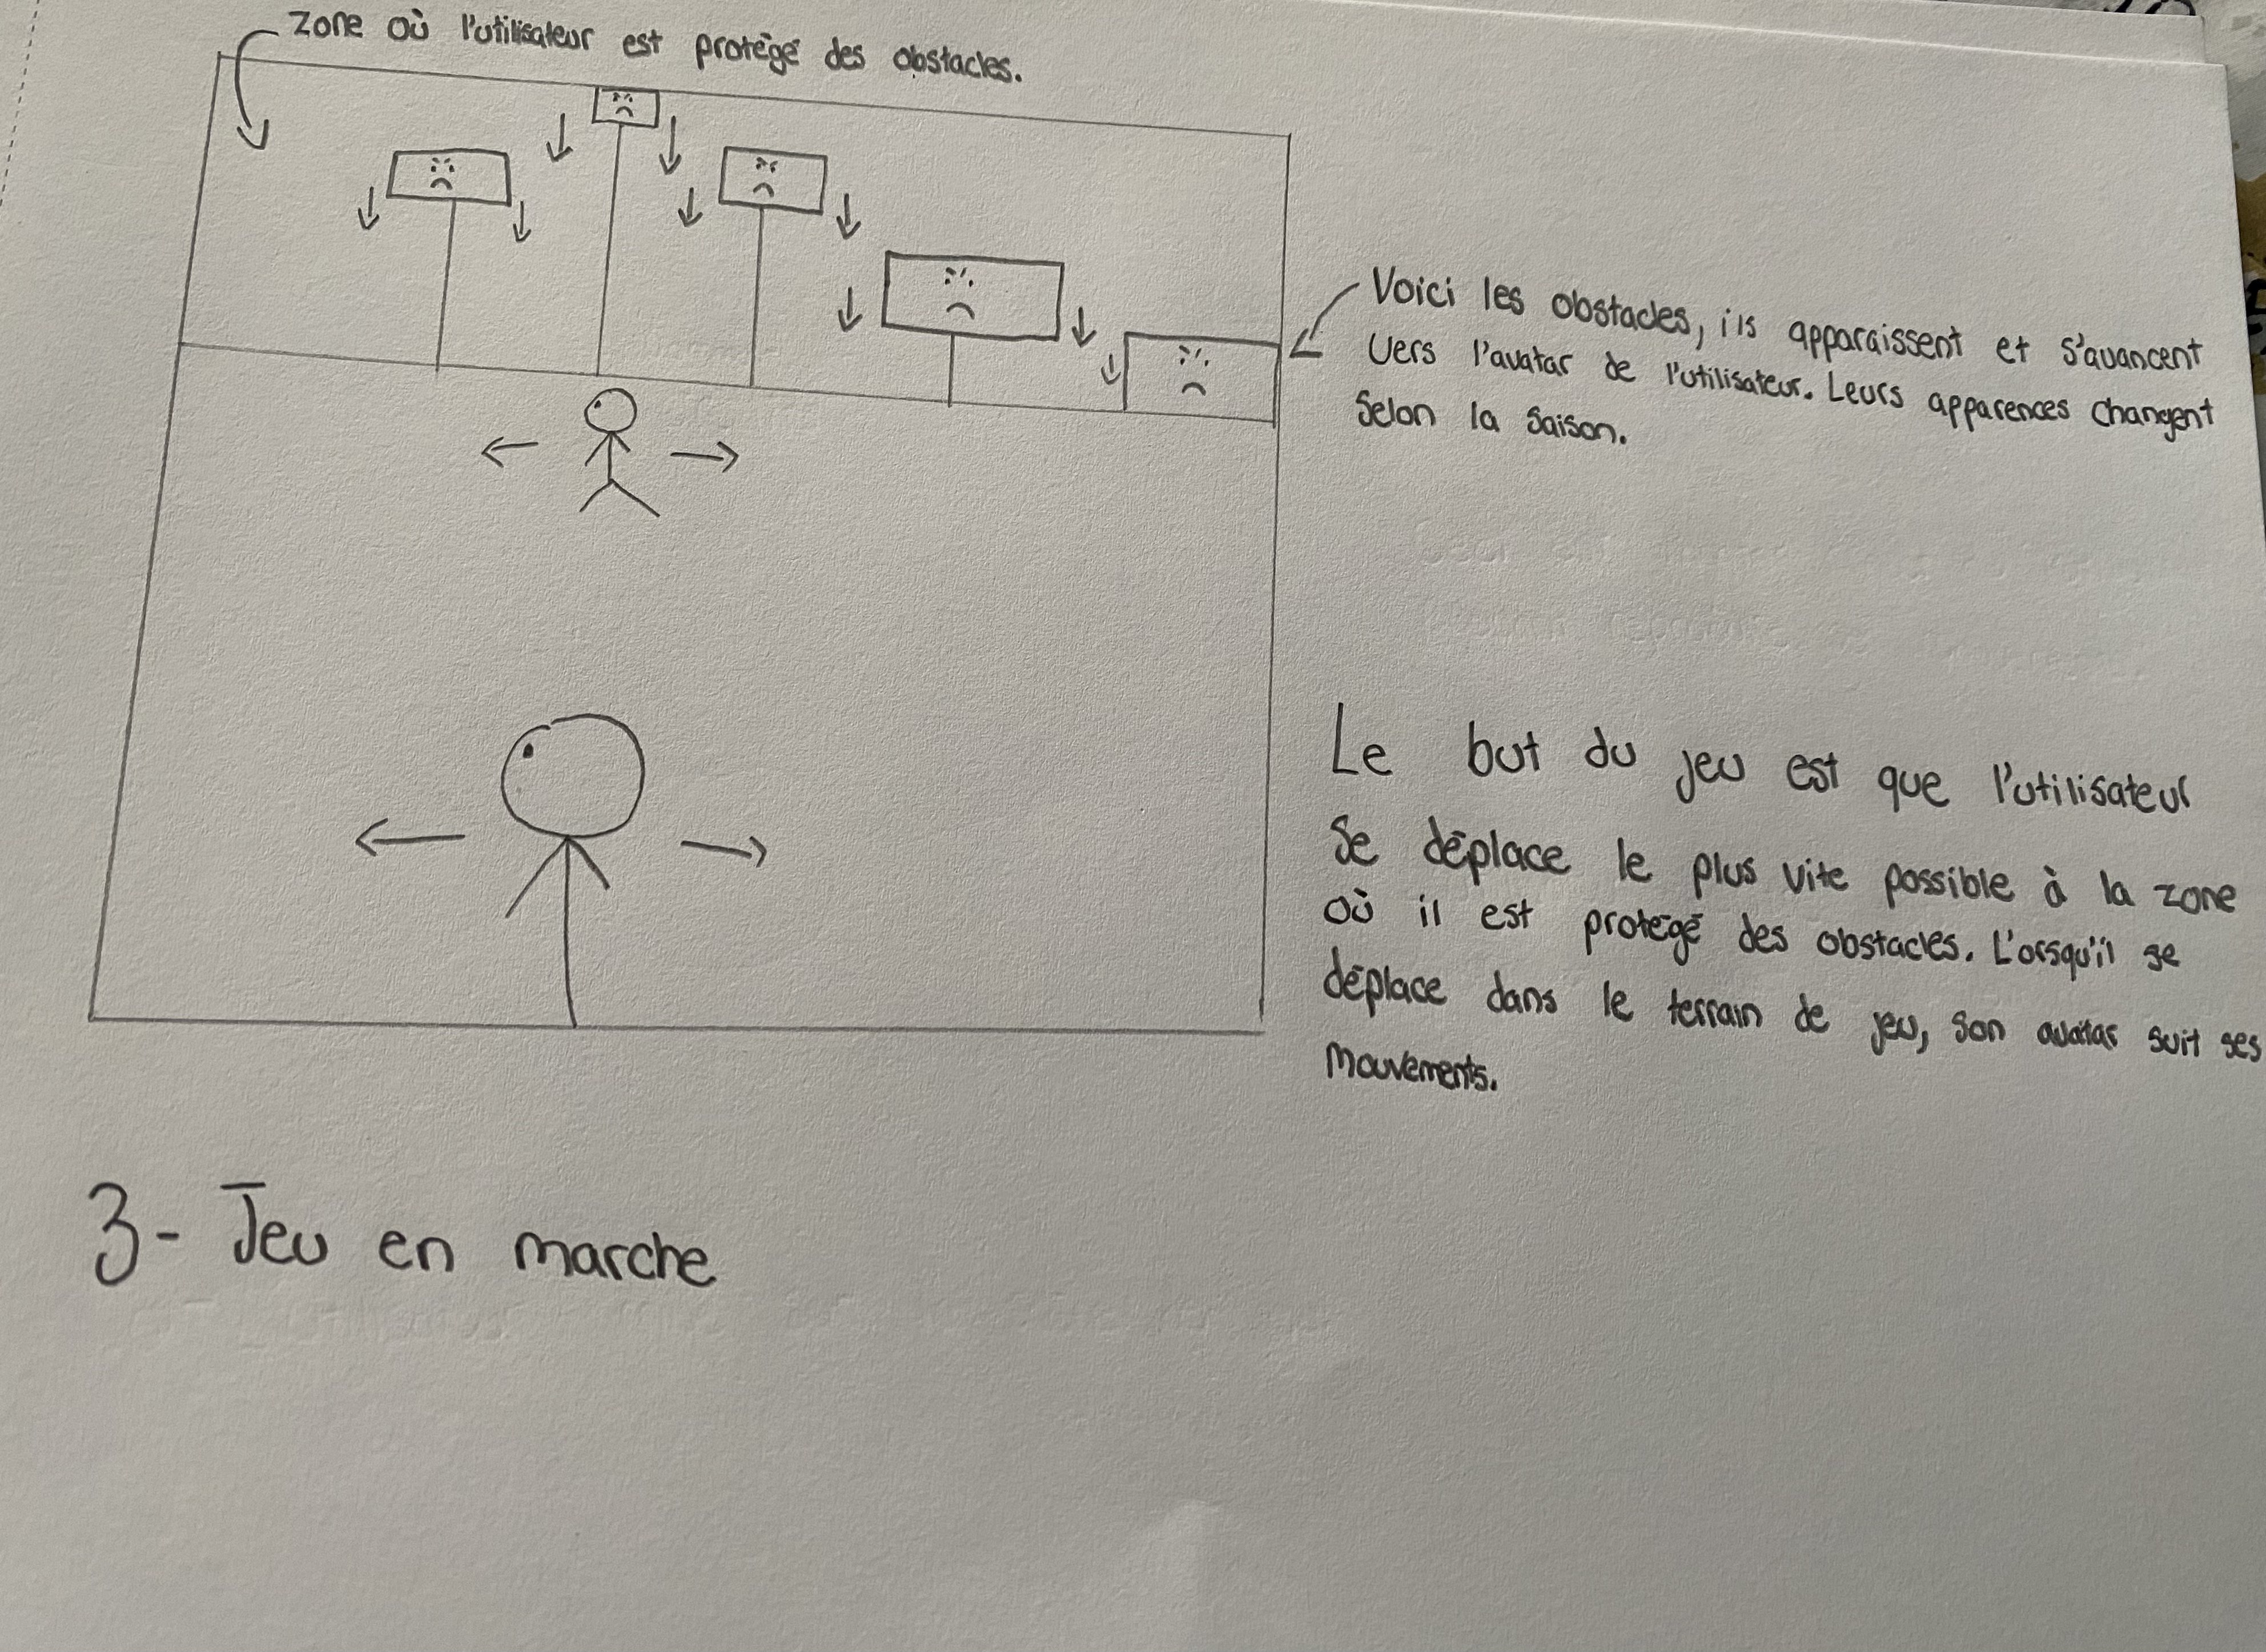 Zone où l'utilisateur est protégé des obstacles.
Voici les obstacles, ils apparaissent et s'avancent
vers l'avatar de l'utilisateur. Leurs apparences changent
selon la saison.
Le but du jeu est que l'utilisateur
se déplace le plus vite possible à la zone
où il est protégé des obstacles. L'orsqu'il se
déplace dans le terrain de jeu, son avatar suit ses
mouvements.
3- Jeu en marche